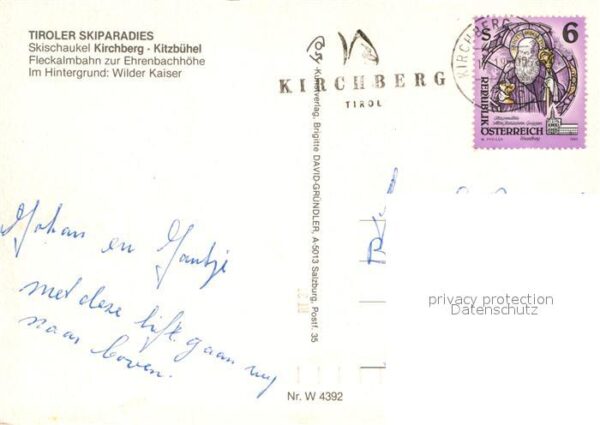 TIROLER SKIPARADIES
Skischaukel Kirchberg · Kitzbühel
Fleckalmbahn zur Ehrenbachhöhe
Im Hintergrund: Wilder Kaiser
KIRCHBERG
TIROL
KIRCHBERG
S 6
REPUBLIK
ÖSTERREICH
Kunstverlag, Brigitte DAVID-GRÜNDLER, A-5013 Salzburg, Postf. 35
Johan en Jantje
met deze lift gaan wij
naar boven.
privacy protection
Datenschutz
Nr. W 4392